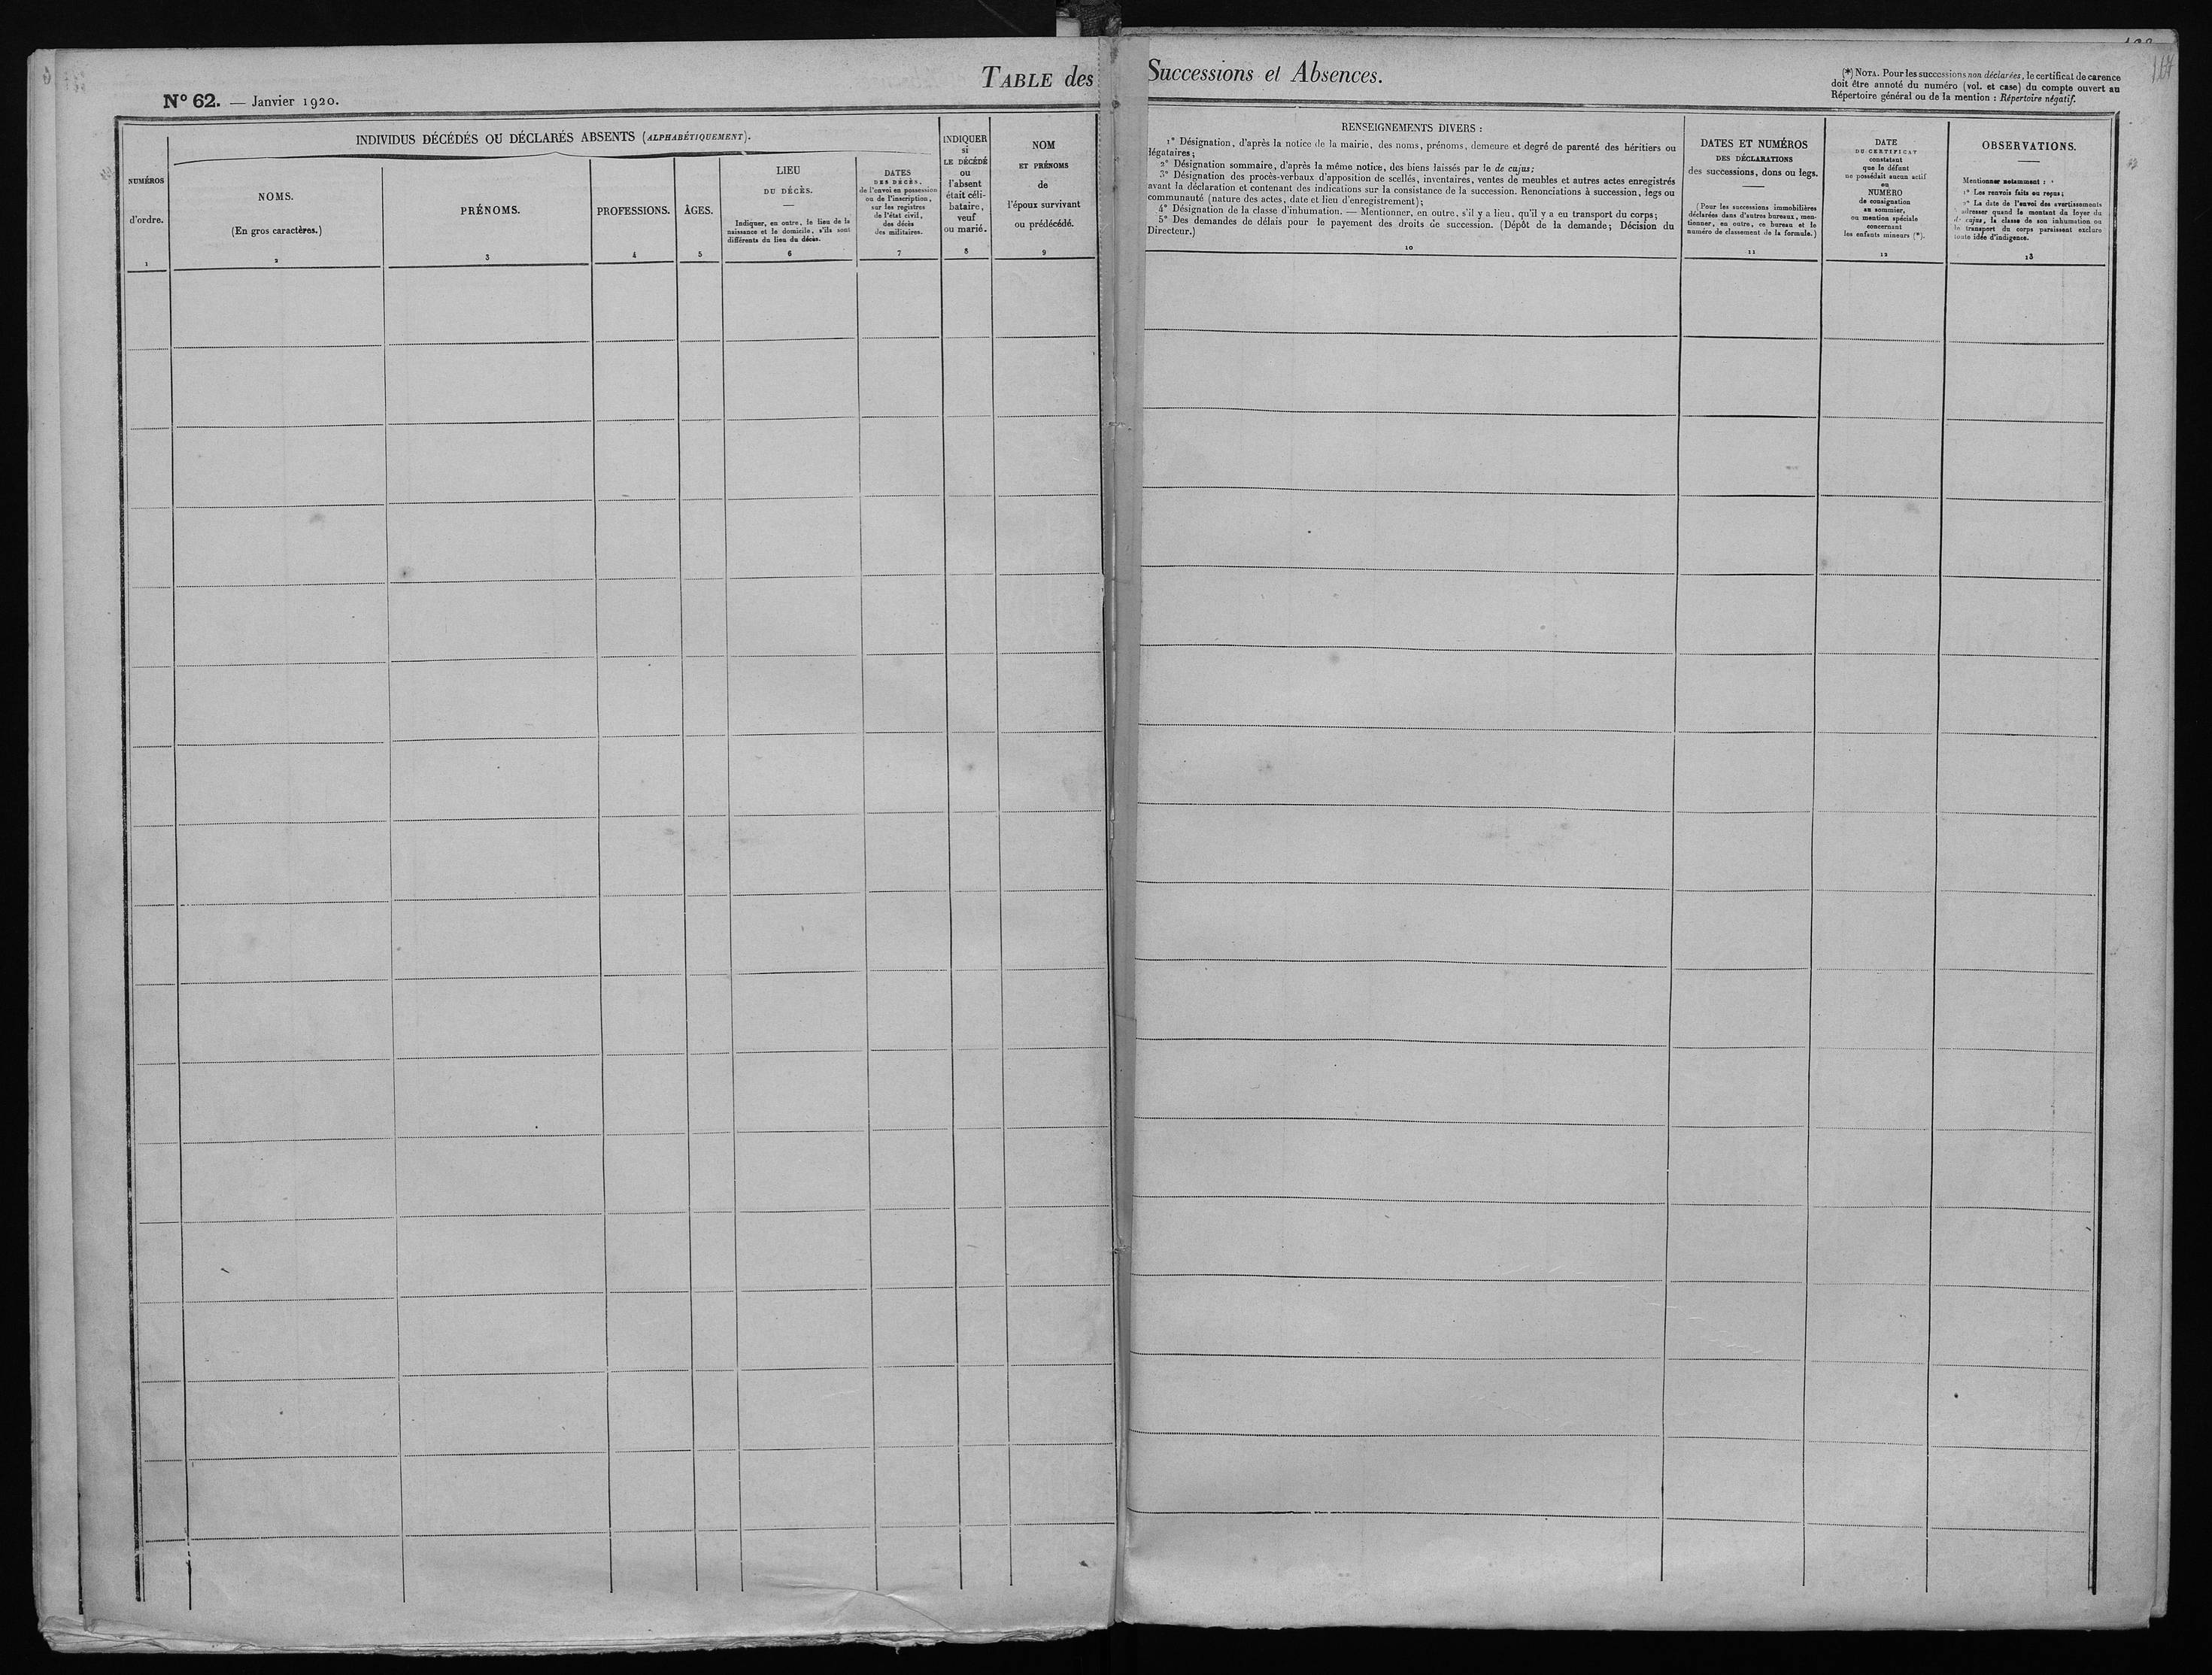 TABLE des Successions et Absences.
N° 62. — Janvier 1920.
(*) NOTA. Pour les successions non déclarées, le certificat de carence
doit être annoté du numéro (vol. et case) du compte ouvert au
Répertoire général ou de la mention : Répertoire négatif.
167
NUMÉROS
d'ordre.
1
INDIVIDUS DÉCÉDÉS OU DÉCLARÉS ABSENTS (ALPHABÉTIQUEMENT).
NOMS.
(En gros caractères.)
2
PRÉNOMS.
3
PROFESSIONS.
4
ÂGES.
5
LIEU
DU DÉCÈS.
—
Indiquer, en outre, le lieu de la
naissance et le domicile, s'ils sont
différents du lieu du décès.
6
DATES
DES DÉCÈS,
de l'envoi en possession
ou de l'inscription,
sur les registres
de l'état civil,
des décès
des militaires.
7
INDIQUER
si
LE DÉCÉDÉ
ou
l'absent
était céli-
bataire,
veuf
ou marié.
8
NOM
ET PRÉNOMS
de
l'époux survivant
ou prédécédé.
9
RENSEIGNEMENTS DIVERS :
1° Désignation, d'après la notice de la mairie, des noms, prénoms, demeure et degré de parenté des héritiers ou
légataires;
2° Désignation sommaire, d'après la même notice, des biens laissés par le de cujus;
3° Désignation des procès-verbaux d'apposition de scellés, inventaires, ventes de meubles et autres actes enregistrés
avant la déclaration et contenant des indications sur la consistance de la succession. Renonciations à succession, legs ou
communauté (nature des actes, date et lieu d'enregistrement);
4° Désignation de la classe d'inhumation. — Mentionner, en outre, s'il y a lieu, qu'il y a eu transport du corps;
5° Des demandes de délais pour le payement des droits de succession. (Dépôt de la demande; Décision du
Directeur.)
10
DATES ET NUMÉROS
DES DÉCLARATIONS
des successions, dons ou legs.
—
(Pour les successions immobilières
déclarées dans d'autres bureaux, men-
tionner, en outre, ce bureau et le
numéro de classement de la formule.)
11
DATE
DU CERTIFICAT
constatant
que le défunt
ne possédait aucun actif
ou
NUMÉRO
de consignation
au sommier,
ou mention spéciale
concernant
les enfants mineurs (*).
12
OBSERVATIONS.
—
Mentionner notamment :
1° Les renvois faits ou reçus;
2° La date de l'envoi des avertissements
à adresser quand le montant du loyer du
de cujus, la classe de son inhumation ou
le transport du corps paraissent exclure
toute idée d'indigence.
13